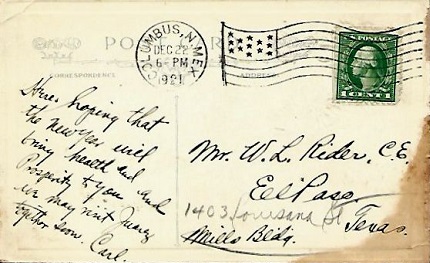 POST CARD
COLUMBUS, N. MEX.
DEC 22
6-PM
1921
CORRESPONDENCE
ADDRESS
U.S. POSTAGE
1 CENT 1
Here's hoping that
the New Year will
bring health and
Prosperity to you and
we may visit Juarez
together soon. Carl.
Mr. W. L. Rider, C.E.
El Paso,
1403 Louisiana St
Texas.
Mills Bldg.